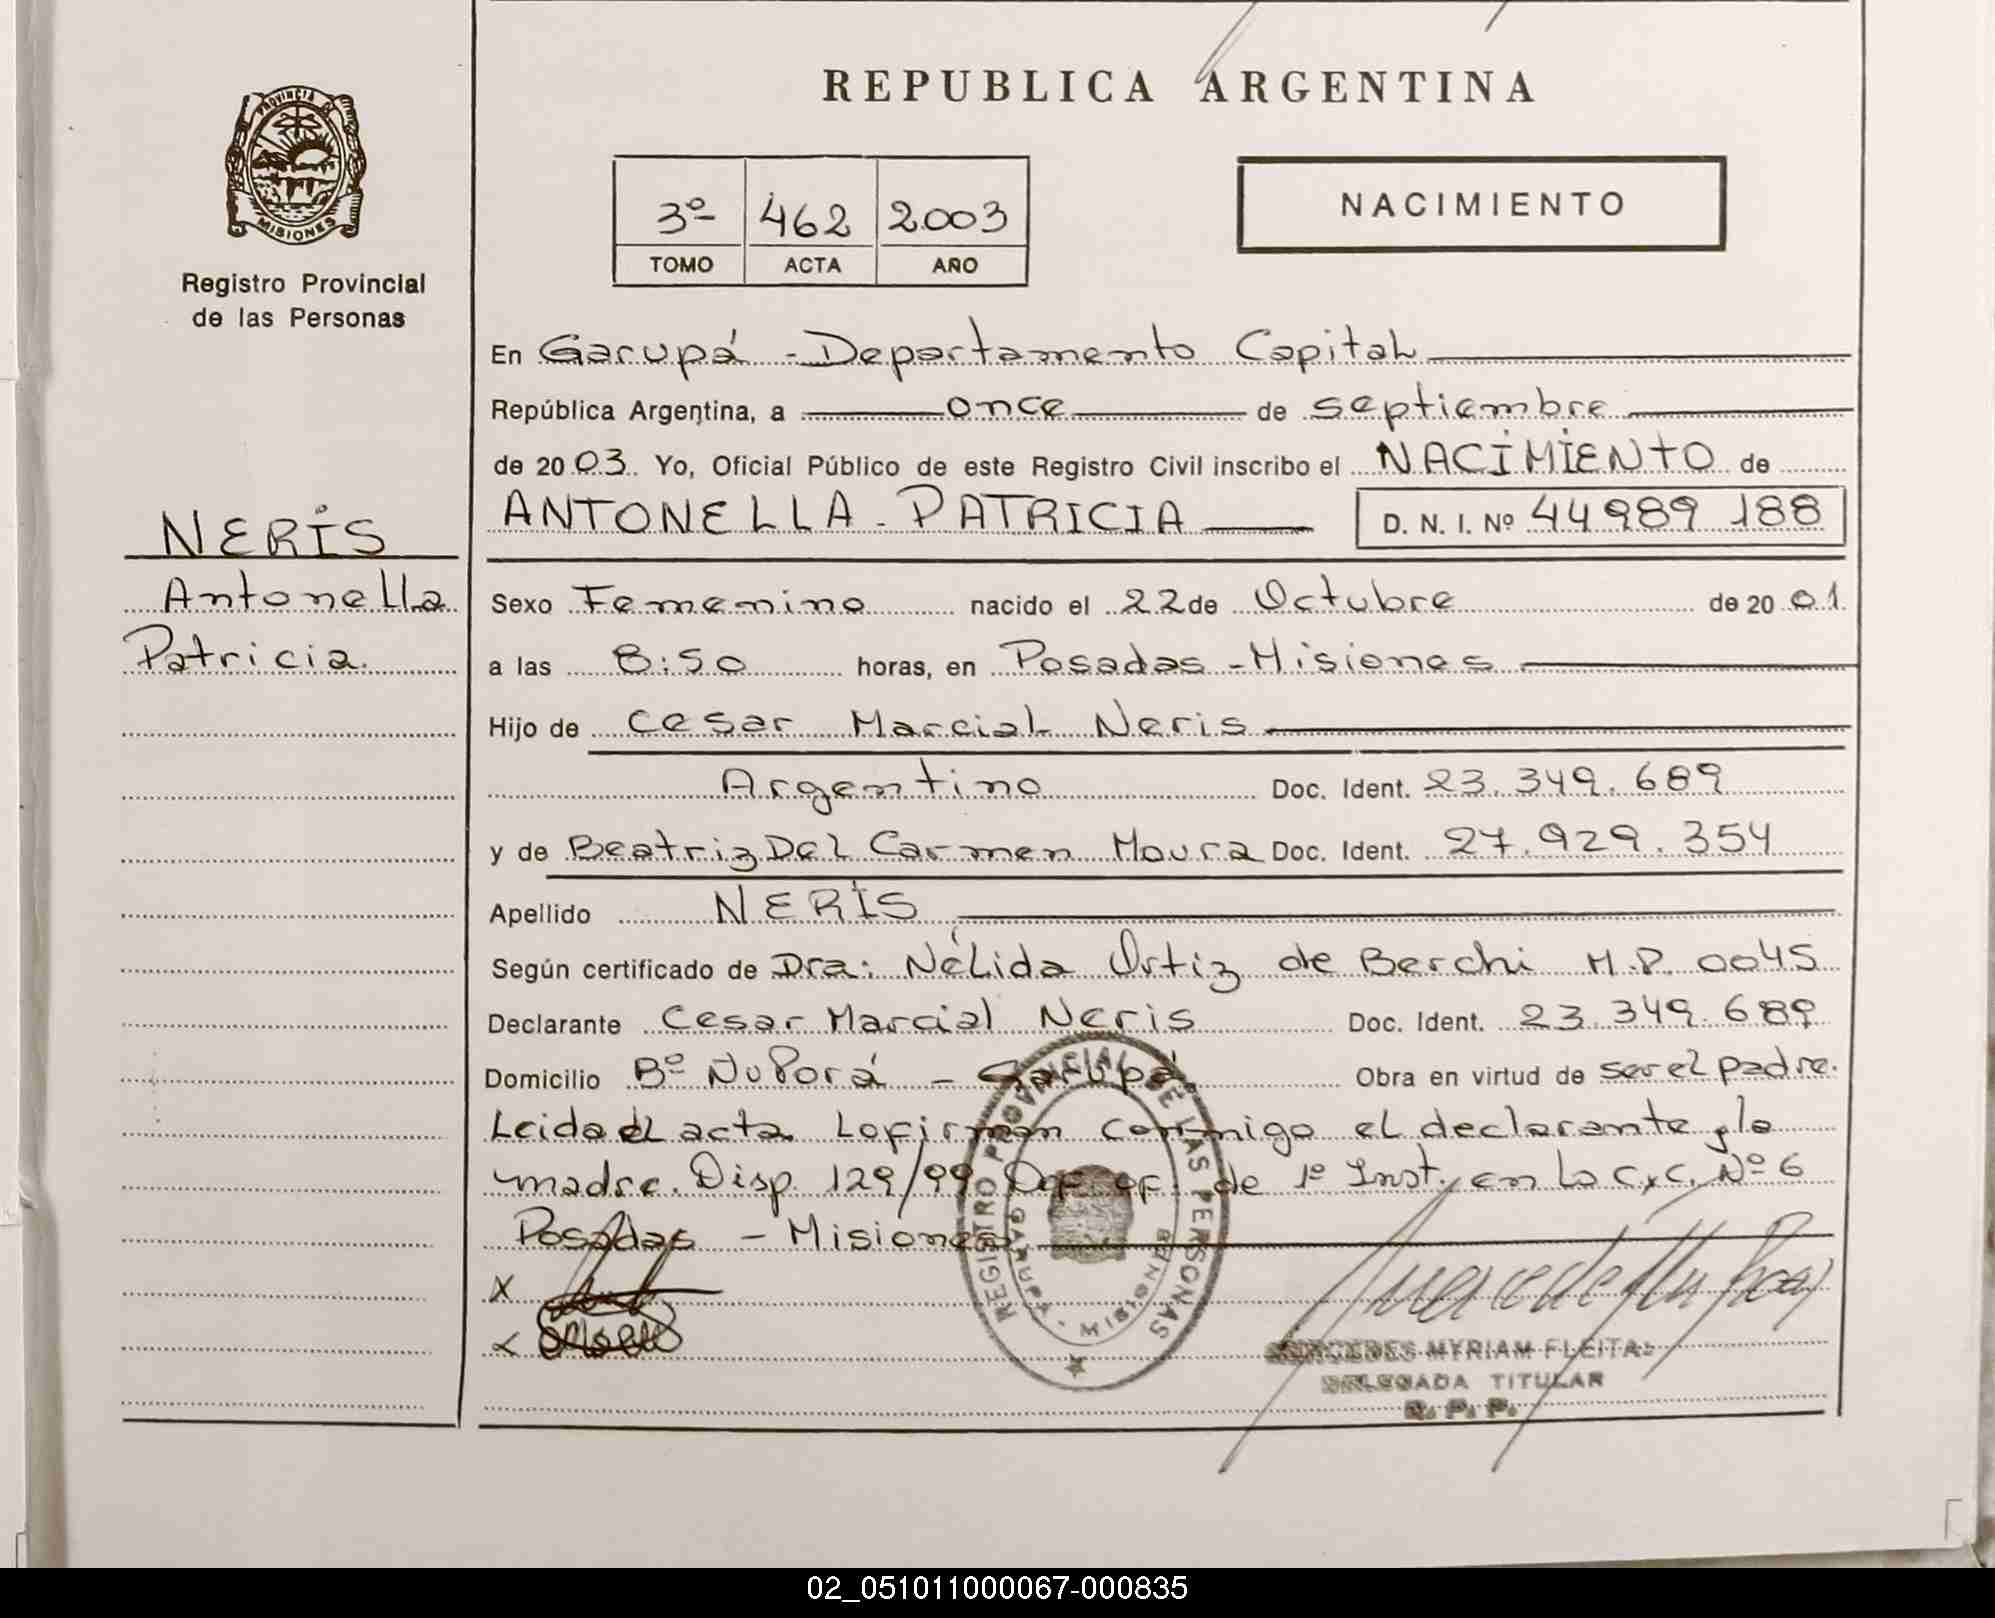 REPUBLICA ARGENTINA
PROVINCIA DE
MISIONES
Registro Provincial
de las Personas
3º 462 2003
TOMO ACTA AÑO
NACIMIENTO
En Garupá - Departamento Capital
República Argentina, a once de septiembre
de 2003. Yo, Oficial Público de este Registro Civil inscribo el NACIMIENTO de
ANTONELLA - PATRICIA D. N. I. Nº 44989188
NERIS
Antonella
Patricia.
Sexo Femenino nacido el 22 de Octubre de 2001
a las 8:50 horas, en Posadas - Misiones
Hijo de Cesar Marcial Neris
Argentino Doc. Ident. 23.349.689
y de Beatriz Del Carmen Moura Doc. Ident. 27.929.354
Apellido NERIS
Según certificado de Dra: Nélida Ortiz de Berchi M.P. 0045
Declarante Cesar Marcial Neris Doc. Ident. 23.349.689
Domicilio Bº Ñu Porá - Garupá Obra en virtud de ser el padre.
Leida el acta La firman conmigo el declarante y la
madre. Disp 129/99 Def of de 1º Inst. en lo C.y C. Nº 6
Posadas - Misiones
X
X
REGISTRO PROVINCIAL DE LAS PERSONAS
GARUPA - MISIONES
MERCEDES MYRIAM FLEITAS
DELEGADA TITULAR
R. P. P.
02_051011000067-000835